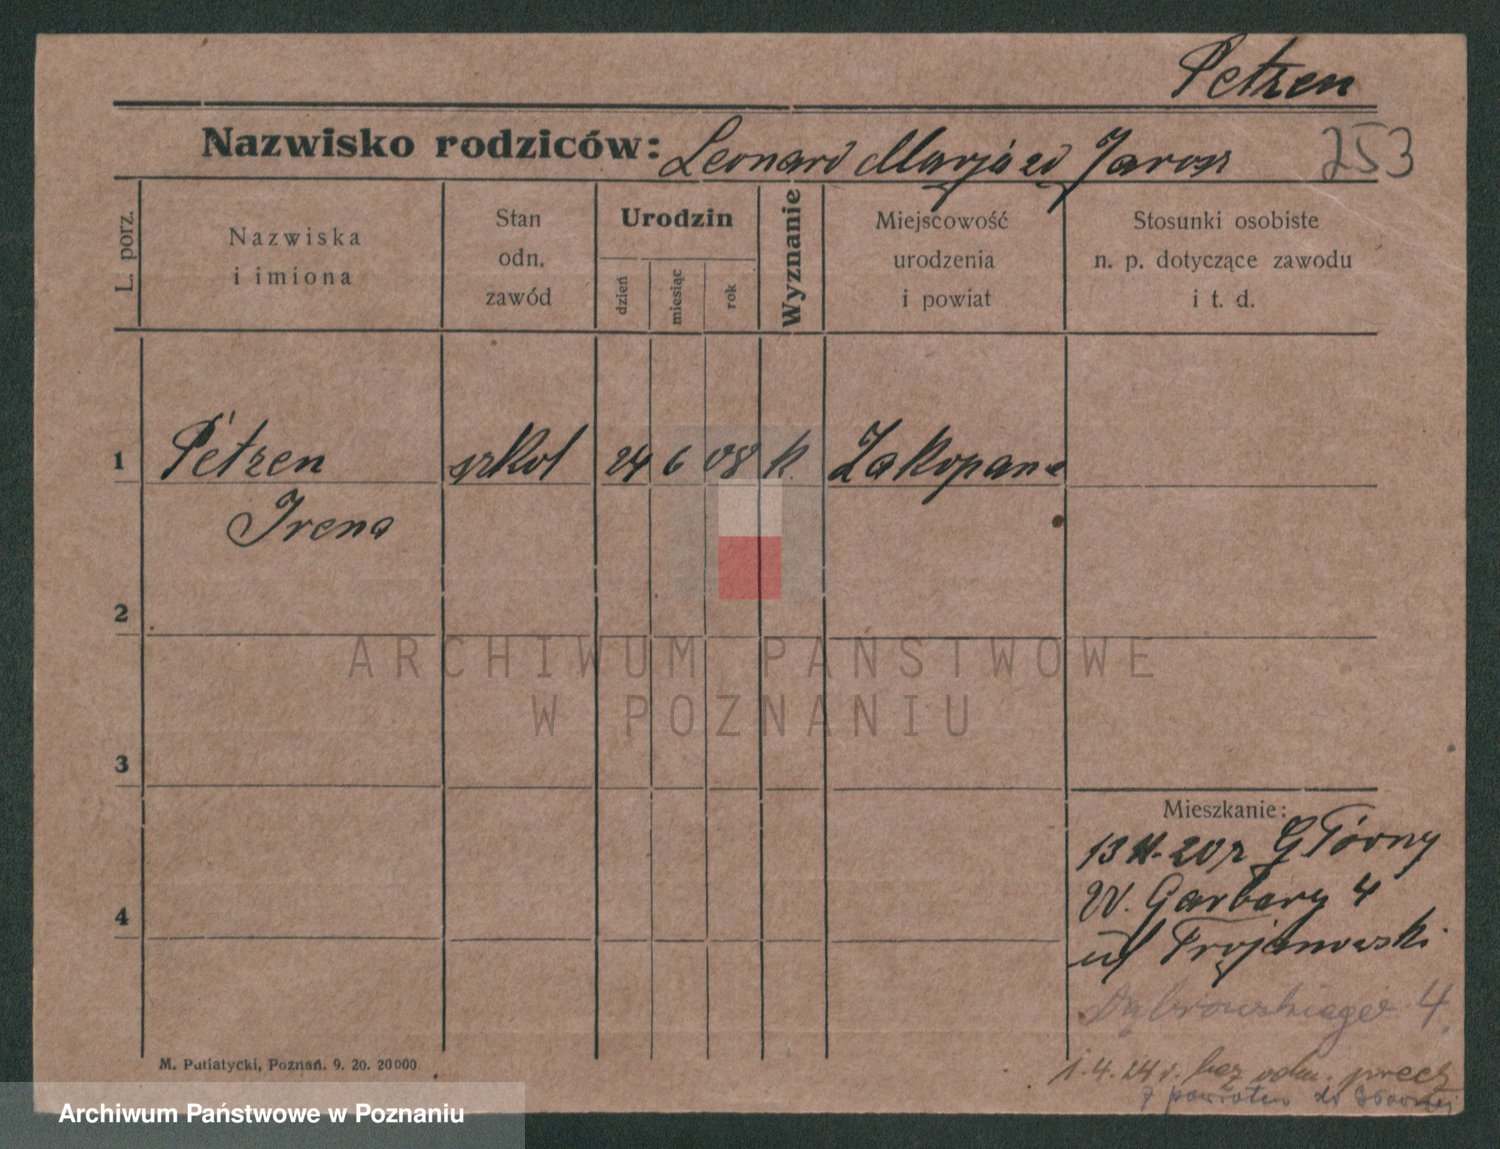 Petzen
Nazwisko rodziców: Leonard Marja zd Jarosz 253
L. porz.
Nazwiska
i imiona
Stan
odn.
zawód
Urodzin
dzień
miesiąc
rok
Wyznanie
Miejscowość
urodzenia
i powiat
Stosunki osobiste
n. p. dotyczące zawodu
i t. d.
1 Petzen szkol 24 6 08 k Zakopane
Irena
2
3
4
Mieszkanie:
Główny
W. Garbary 4
u/ Trojanowski
Dąbrowskiego 4.
1.4.24 r. bez odm. precz
z powrotem do
M. Putiatycki, Poznań. 9. 20. 20000
ARCHIWUM PAŃSTWOWE
W POZNANIU
Archiwum Państwowe w Poznaniu